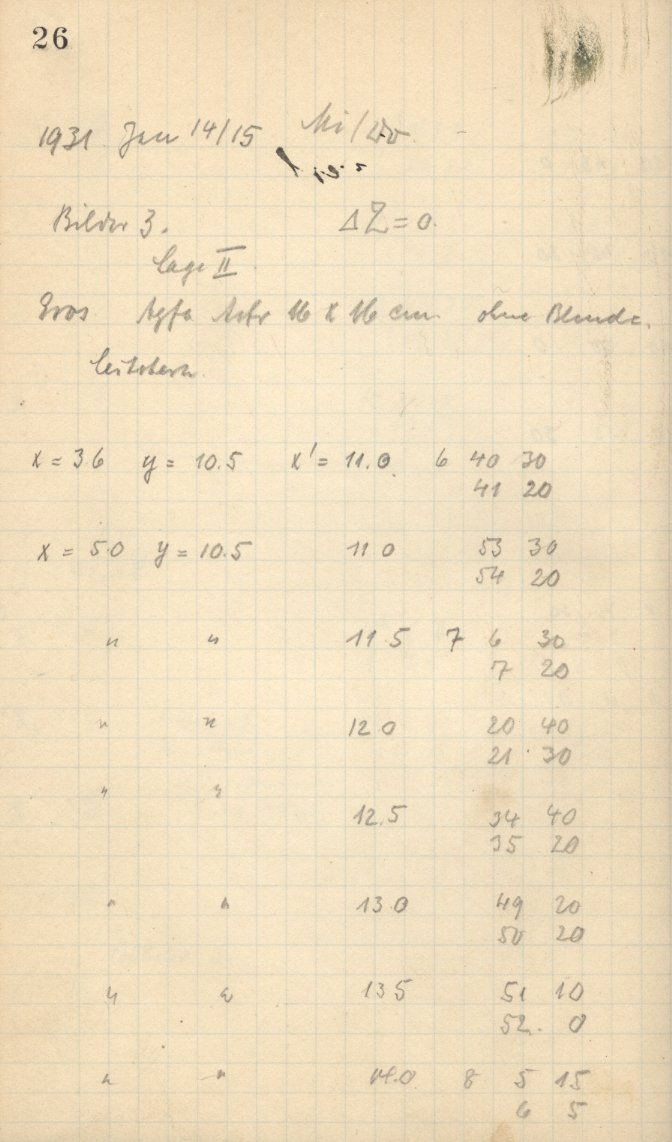 26
1931 Jan 14/15 Mi/Do
Bilder 3. ΔZ = 0.
Lage II
Eros Agfa Astr 16 x 16 cm ohne Blende.
Leitstern.
x = 36 y = 10.5 x' = 11.0 6 40 30
41 20
x = 50 y = 10.5 11 0 53 30
54 20
" " 11 5 7 6 30
7 20
" " 12 0 20 40
21 30
" "
12.5 34 40
35 20
" " 13 0 49 20
50 20
" " 13 5 51 10
52. 0
" " 14.0 8 5 15
6 5